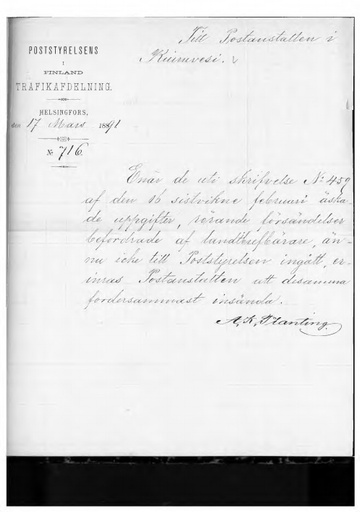 Till Postanstalten i
Kiuruvesi.
POSTSTYRELSENS
I
FINLAND
TRAFIKAFDELNING.
HELSINGFORS,
den 17 Mars 1891
№ 716.
Enär de uti skrifvelse № 459
af den 16 sistvikne februari äska-
de uppgifter, rörande försändelser
befordrade af landtbrefbärare, än-
nu icke till Poststyrelsen ingått, er-
inras Postanstalten att desamma
fordersammast insända.